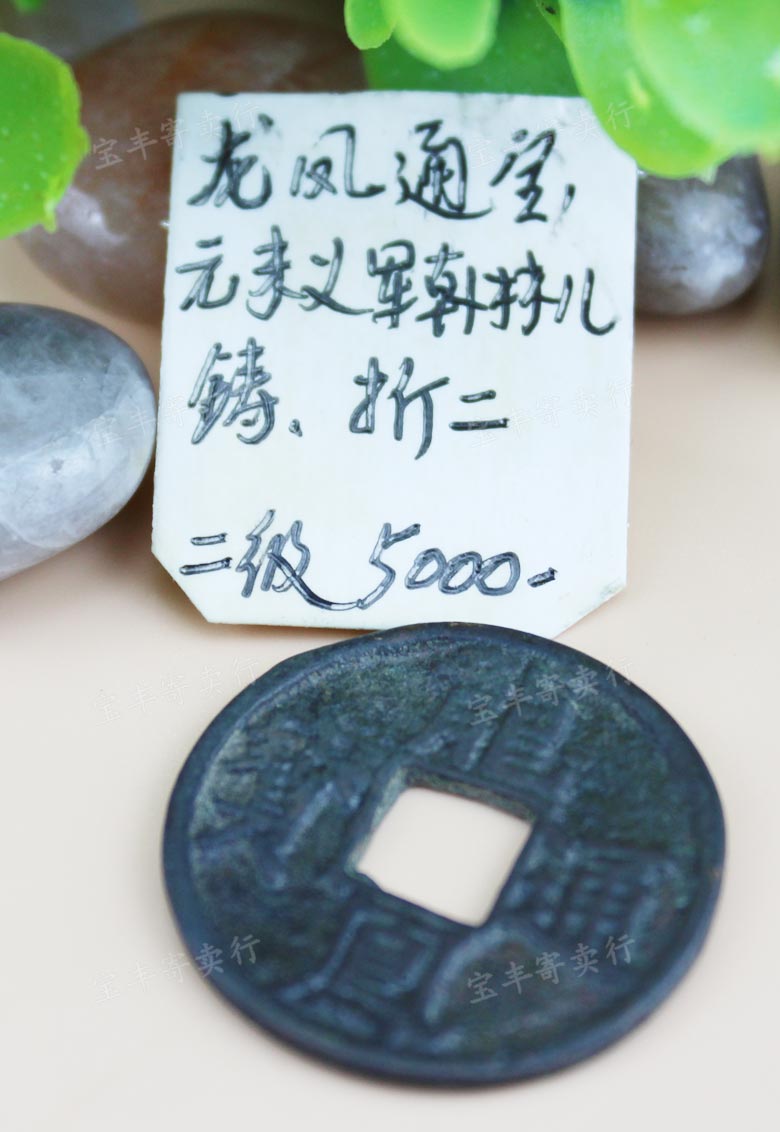 龙凤通宝,
元末义军韩林儿
铸、折二
二级 5000-
宝丰寄卖行
宝丰寄卖行
宝丰寄卖行
宝丰寄卖行
宝丰寄卖行
宝丰寄卖行
宝丰寄卖行
宝丰寄卖行